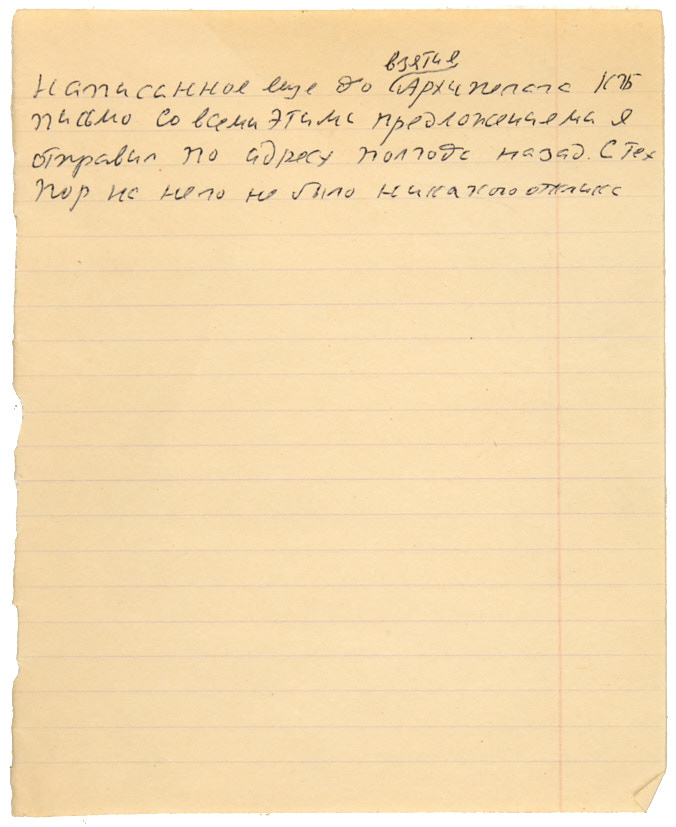 взятия
Написанное еще до Архипелага КГБ
письмо со всеми этими предложениями я
отправил по адресу полгода назад. С тех
пор на него не было никакого отклика